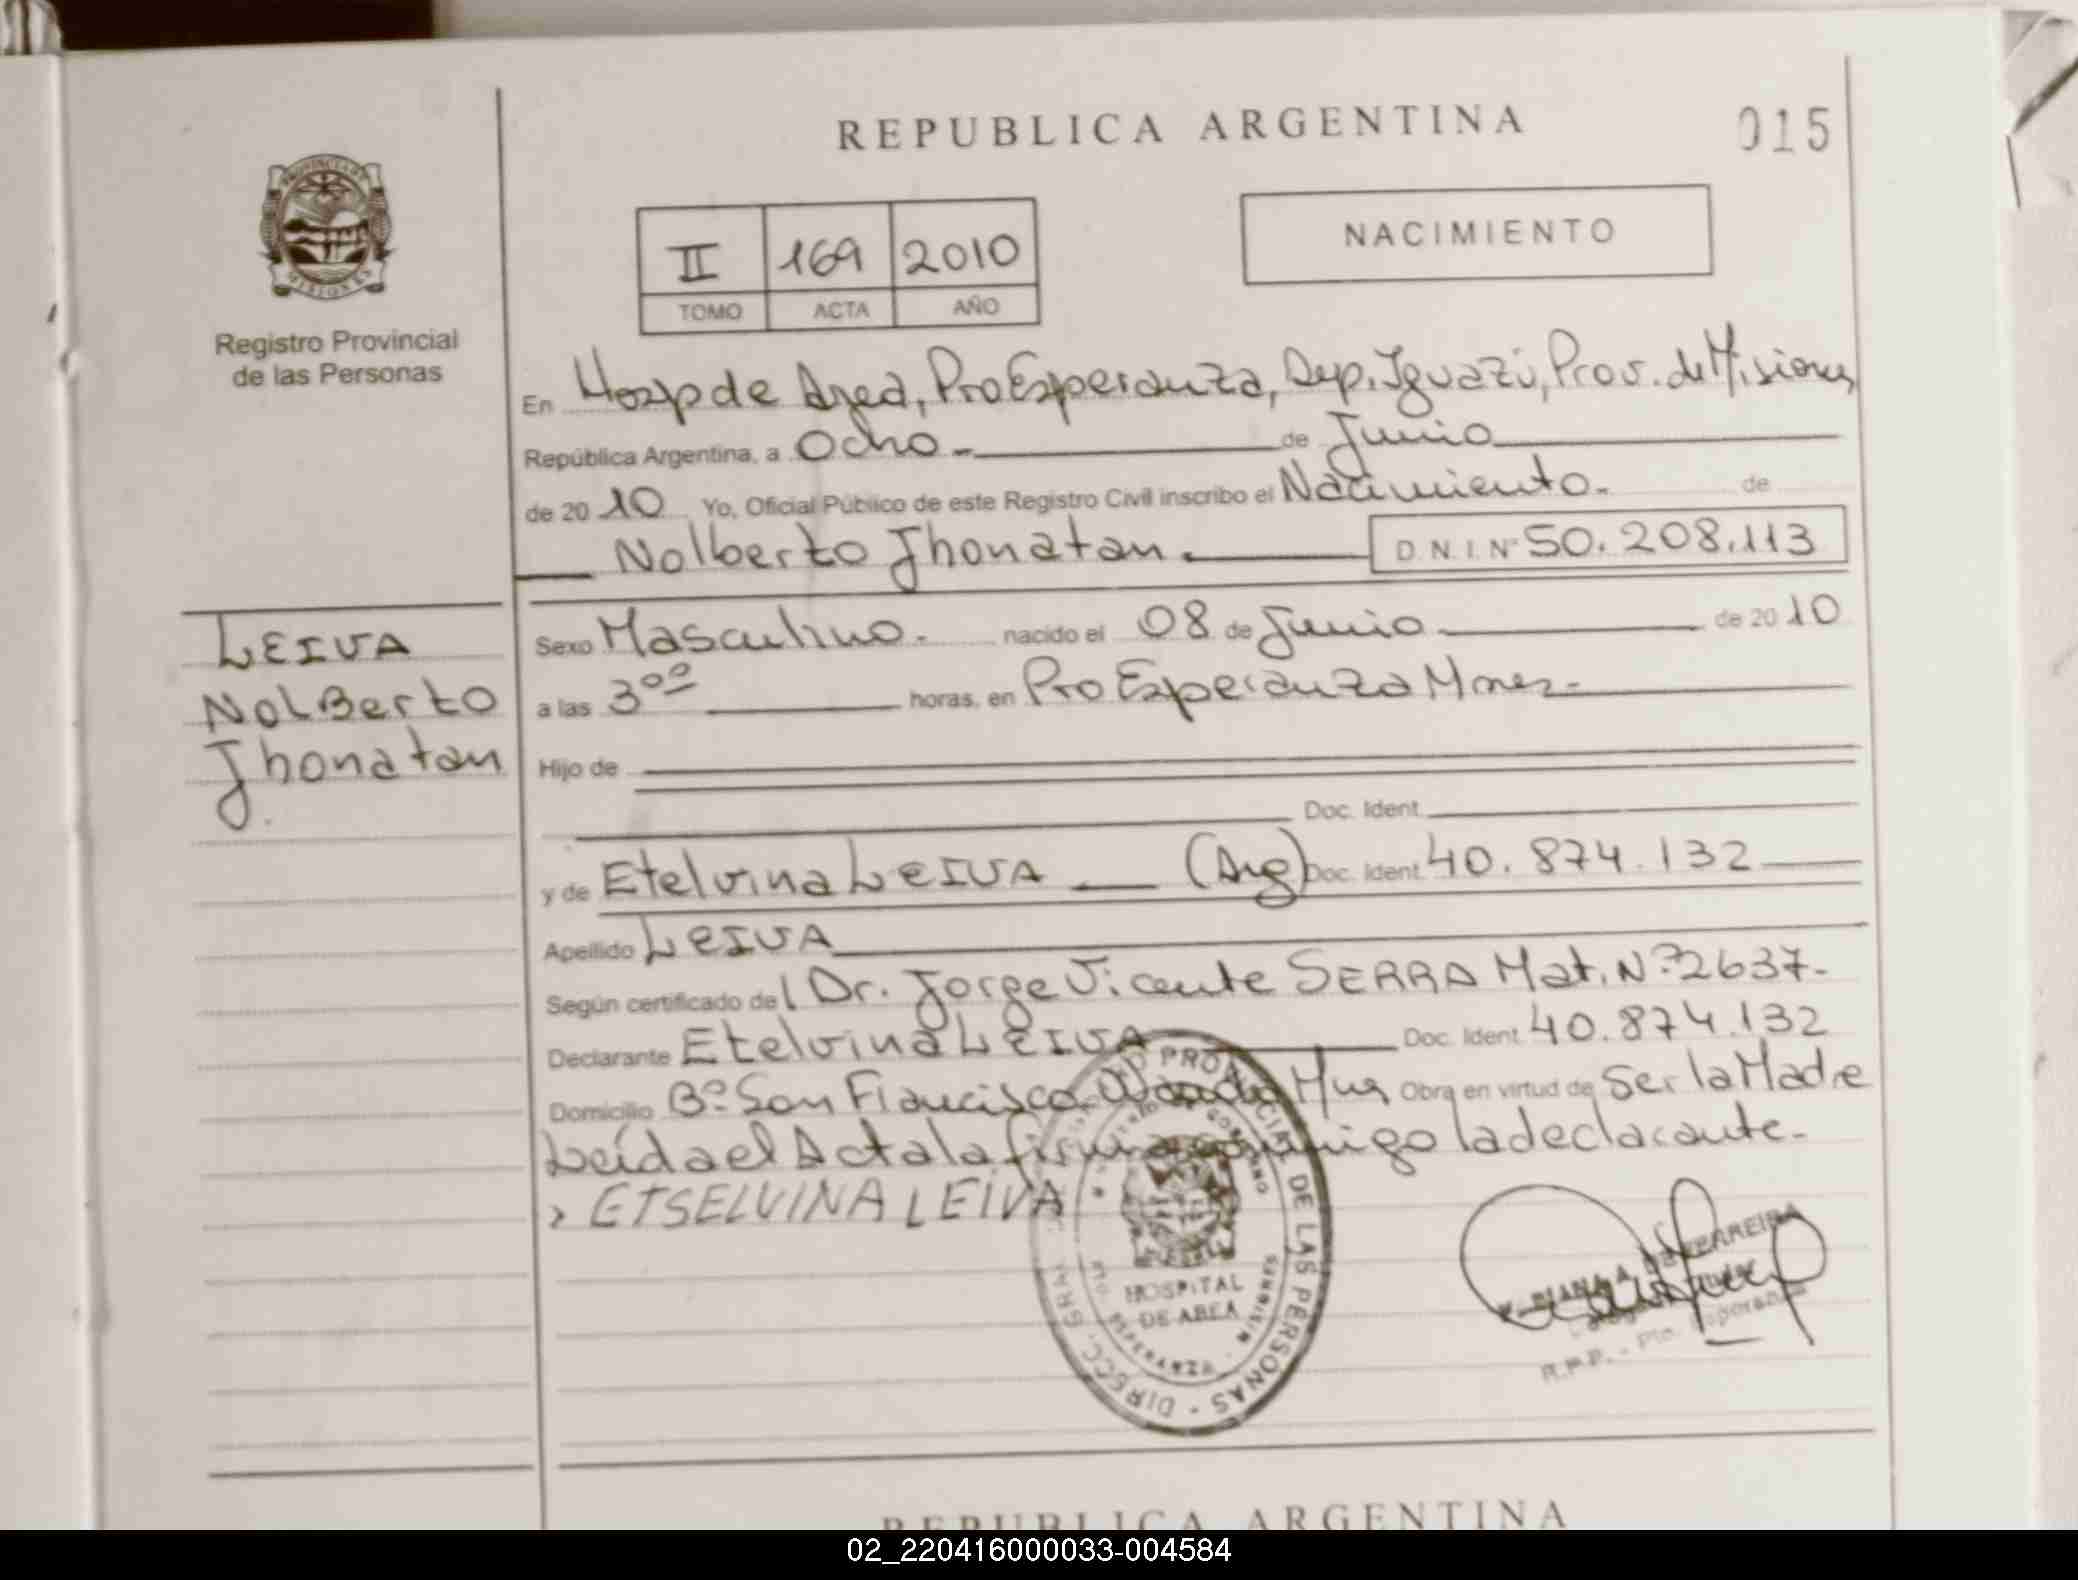 REPUBLICA ARGENTINA
015
PROVINCIA DE
MISIONES
Registro Provincial
de las Personas
II 169 2010
TOMO ACTA AÑO
NACIMIENTO
En Hosp de Area, Pto Esperanza, Dep. Iguazú, Prov. de Misiones
República Argentina, a Ocho.- de Junio
de 2010 Yo, Oficial Público de este Registro Civil inscribo el Nacimiento.- de
Nolberto Jhonatan.- D.N.I.Nº 50.208.113
LEIVA
Nolberto
Jhonatan
Sexo Masculino.- nacido el 08 de Junio.- de 2010
a las 3ºº horas, en Pto Esperanza Mnes.-
Hijo de
Doc. Ident.
y de Etelvina LEIVA (Arg) Doc. Ident. 40.874.132
Apellido LEIVA
Según certificado del Dr. Jorge Vicente SERRA Mat. Nº 2637.-
Declarante Etelvina LEIVA Doc. Ident. 40.874.132
Domicilio Bº San Francisco Wanda Mnes Obra en virtud de Ser la Madre
Leída el Acta la firma conmigo la declarante.-
ETSELVINA LEIVA
PROVINCIAL DE LAS PERSONAS - DIRECC. GRAL.
HOSPITAL
DE AREA
ESPERANZA - MISIONES
FERREIRA
R.P.P. - Pto. Esperanza
REPUBLICA ARGENTINA
02_220416000033-004584